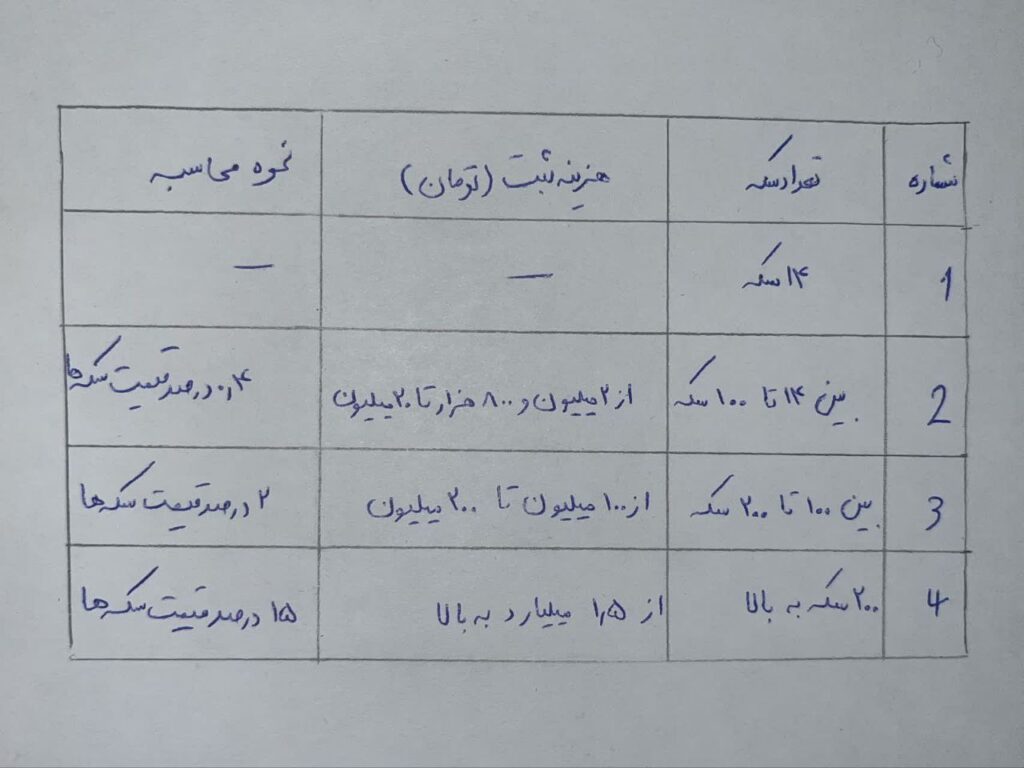 شماره تعداد سکه هزینه ثبت (تومان) نحوه محاسبه
1 ۱۴ سکه — —
2 بین ۱۴ تا ۱۰۰ سکه از ۲ میلیون و ۸۰۰ هزار تا ۲۰ میلیون ۰٫۴ درصد قیمت سکه‌ها
3 بین ۱۰۰ تا ۲۰۰ سکه از ۱۰۰ میلیون تا ۲۰۰ میلیون ۲ درصد قیمت سکه‌ها
4 ۲۰۰ سکه به بالا از ۱٫۵ میلیارد به بالا ۱۵ درصد قیمت سکه‌ها